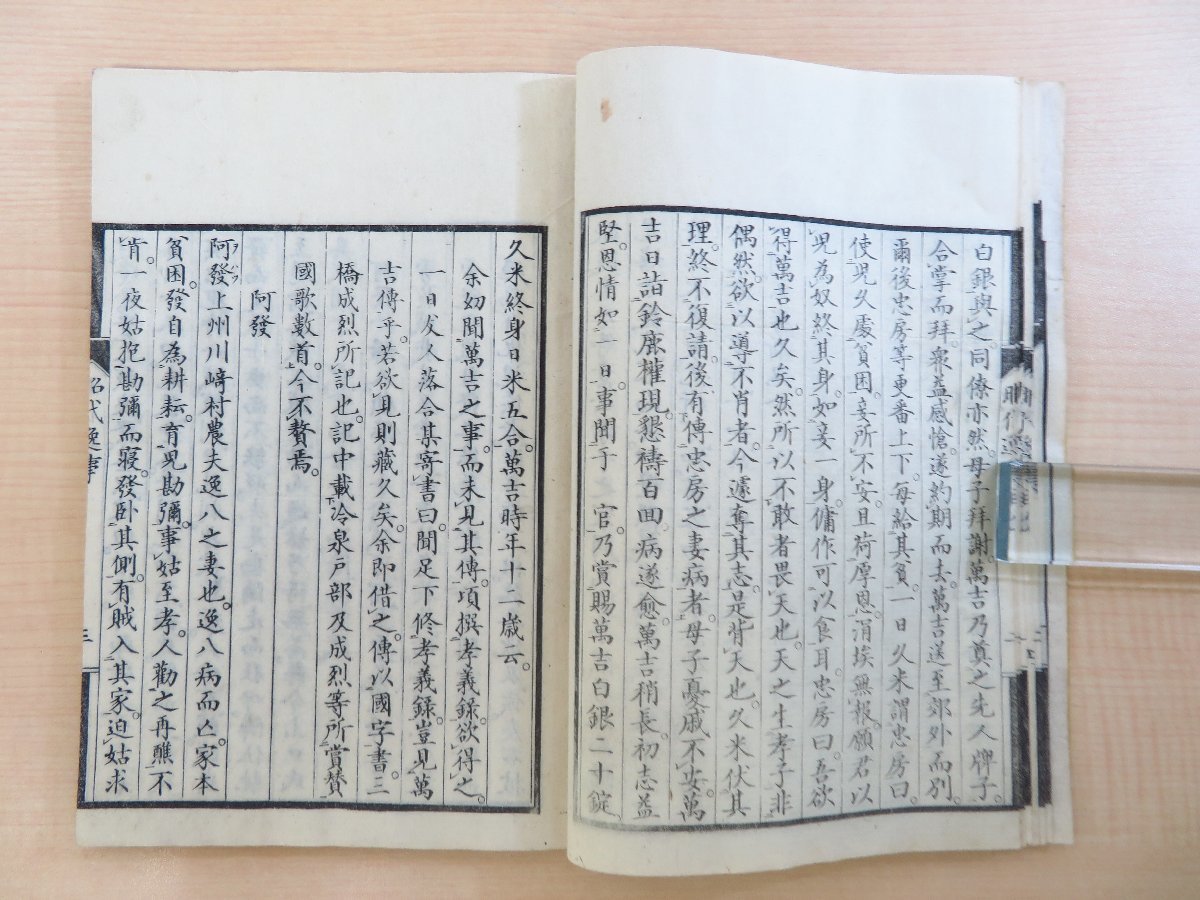 白銀與之。同僚亦然。母子拜謝。萬吉乃奠之先人牌子。
合掌而拜。衆益感愴。遂約期而去。萬吉送至郊外而別。
爾後忠房等更番上下。每給其貧。一日久米謂忠房曰。
使兒久處貧困。妾所不安。且荷厚恩。涓埃無報。願君以
兒為奴終其身。如妾一身。傭作可以食耳。忠房曰。吾欲
得萬吉也久矣。然所以不敢者畏天也。天之生孝子非
偶然。欲以導不肖者。今遽奪其志。是背天也。久米伏其
理。終不復請。後有傳忠房之妻病者。母子憂戚不安。萬
吉日詣鈴鹿權現。懇禱百回。病遂愈。萬吉稍長。初志益
堅。恩情如一日。事聞于官。乃賞賜萬吉白銀二十錠。
久米終身日米五合。萬吉時年十二歲云。
余幼聞萬吉之事。而未見其傳。頃撰孝義錄。欲得之。
一日友人落合某寄書曰。聞足下修孝義錄。豈見萬
吉傳乎。若欲見則藏久矣。余即借之。傳以國字書。三
橋成烈所記也。記中載冷泉戶部及成烈等所賞贊
國歌數首。今不贅焉。
阿發
阿發上州川﨑村農夫逸八之妻也。逸八病而亡。家本
貧困。發自為耕耘。育兒勘彌。事姑至孝。人勸之再醮不
肯。一夜姑抱勘彌而寢。發卧其側。有賊入其家。迫姑求
昭代逸事
三